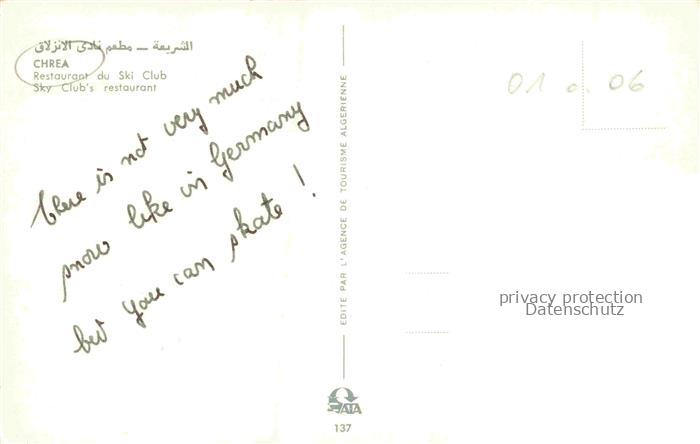 الشريعة — مطعم نادى الانزلاق
CHREA
Restaurant du Ski Club
Sky Club's restaurant
there is not very much
snow like in Germany
but you can skate !
EDITE PAR L'AGENCE DE TOURISME ALGERIENNE
ATA
137
01 0. 06
privacy protection
Datenschutz